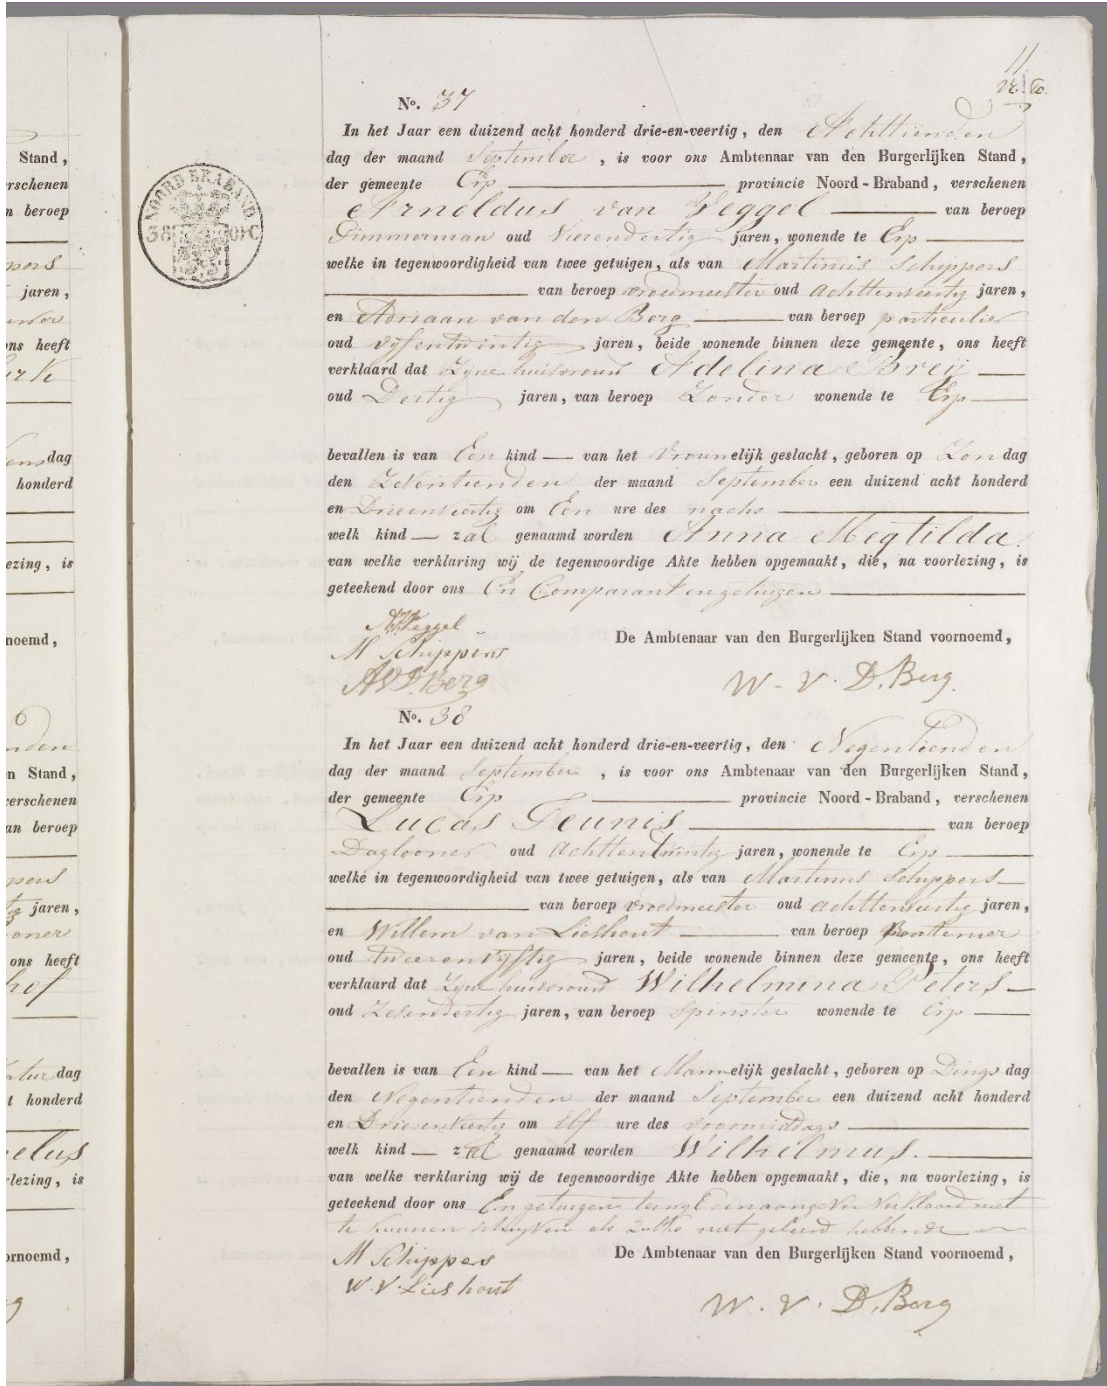 Stand,
erschenen
n beroep
pers
jaren,
ons heeft
urk
dag
honderd
ezing, is
noemd,
nden
n Stand,
verschenen
an beroep
pers
jaren,
oner
ons heeft
hof
atur dag
t honderd
elus
rlezing, is
ornoemd,
11
NOORD BRABAND
No. 37
In het Jaar een duizend acht honderd drie-en-veertig, den Achttienden
dag der maand September, is voor ons Ambtenaar van den Burgerlijken Stand,
der gemeente Erp provincie Noord-Braband, verschenen
Arnoldus van Veggel van beroep
Timmerman oud Vierendertig jaren, wonende te Erp
welke in tegenwoordigheid van twee getuigen, als van Martinus Schippers
van beroep vroedmeester oud achttenveertig jaren,
en Adriaan van den Berg van beroep particulier
oud vyfentwintig jaren, beide wonende binnen deze gemeente, ons heeft
verklaard dat Zyne huisvrouw Adelina Breij
oud Dertig jaren, van beroep Zonder wonende te Erp
bevallen is van Een kind — van het Vrouwelijk geslacht, geboren op Zondag
den Zeventienden der maand September een duizend acht honderd
en Drieenveertig om Een ure des nachs
welk kind — zal genaamd worden Anna Megtilda.
van welke verklaring wij de tegenwoordige Akte hebben opgemaakt, die, na voorlezing, is
geteekend door ons En Comparant en getuigen
Veggel
M Schippers
A V D. Berg
De Ambtenaar van den Burgerlijken Stand voornoemd,
W. V. D. Berg.
No. 38
In het Jaar een duizend acht honderd drie-en-veertig, den Negentienden
dag der maand September, is voor ons Ambtenaar van den Burgerlijken Stand,
der gemeente Erp provincie Noord-Braband, verschenen
Lucas Teunis van beroep
Daglooner oud achttentwintig jaren, wonende te Erp
welke in tegenwoordigheid van twee getuigen, als van Martinus Schippers
van beroep vroedmeester oud achttenveertig jaren,
en Willem van Lieshout van beroep
oud tweeenvyftig jaren, beide wonende binnen deze gemeente, ons heeft
verklaard dat Zyne huisvrouw Wilhelmina Peters
oud Zesendertig jaren, van beroep Spinster wonende te Erp
bevallen is van Een kind — van het Mannelijk geslacht, geboren op Dingsdag
den Negentienden der maand September een duizend acht honderd
en Drieenveertig om Elf ure des voormiddags
welk kind — zal genaamd worden Wilhelmus.
van welke verklaring wij de tegenwoordige Akte hebben opgemaakt, die, na voorlezing, is
geteekend door ons En getuigen terwyl Eenaangever Verklaard niet
te kunnen schryven als zulks niet geleerd hebbende
M Schippers
W. V. Lieshout
De Ambtenaar van den Burgerlijken Stand voornoemd,
W. V. D. Berg